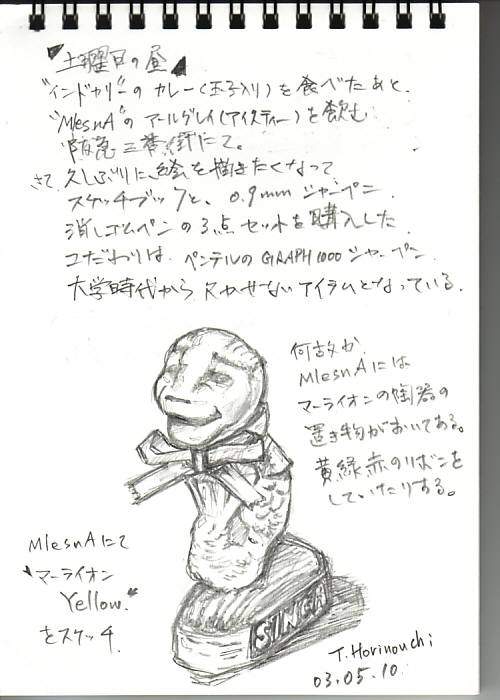 土曜日の昼
"インドカリー"のカレー(玉子入り)を食べたあと、
"MlesnA"のアールグレイ(アイスティー)を飲む
阪急三番街にて。
さて、久しぶりに、絵を描きたくなって
スケッチブックと、0.9mm シャーペン、
消しゴムペンの3点セットを購入した。
コだわりは、ペンテルの GRAPH1000 シャーペン、
大学時代から欠かせないアイテムとなっている。
何故か、
MlesnAには
マーライオンの陶器の
置き物がおいてある。
黄緑赤のりぼんを
していたりする。
MlesnAにて
"マーライオン
Yellow."
をスケッチ.
SINGA
T.Horinouchi
03.05.10.